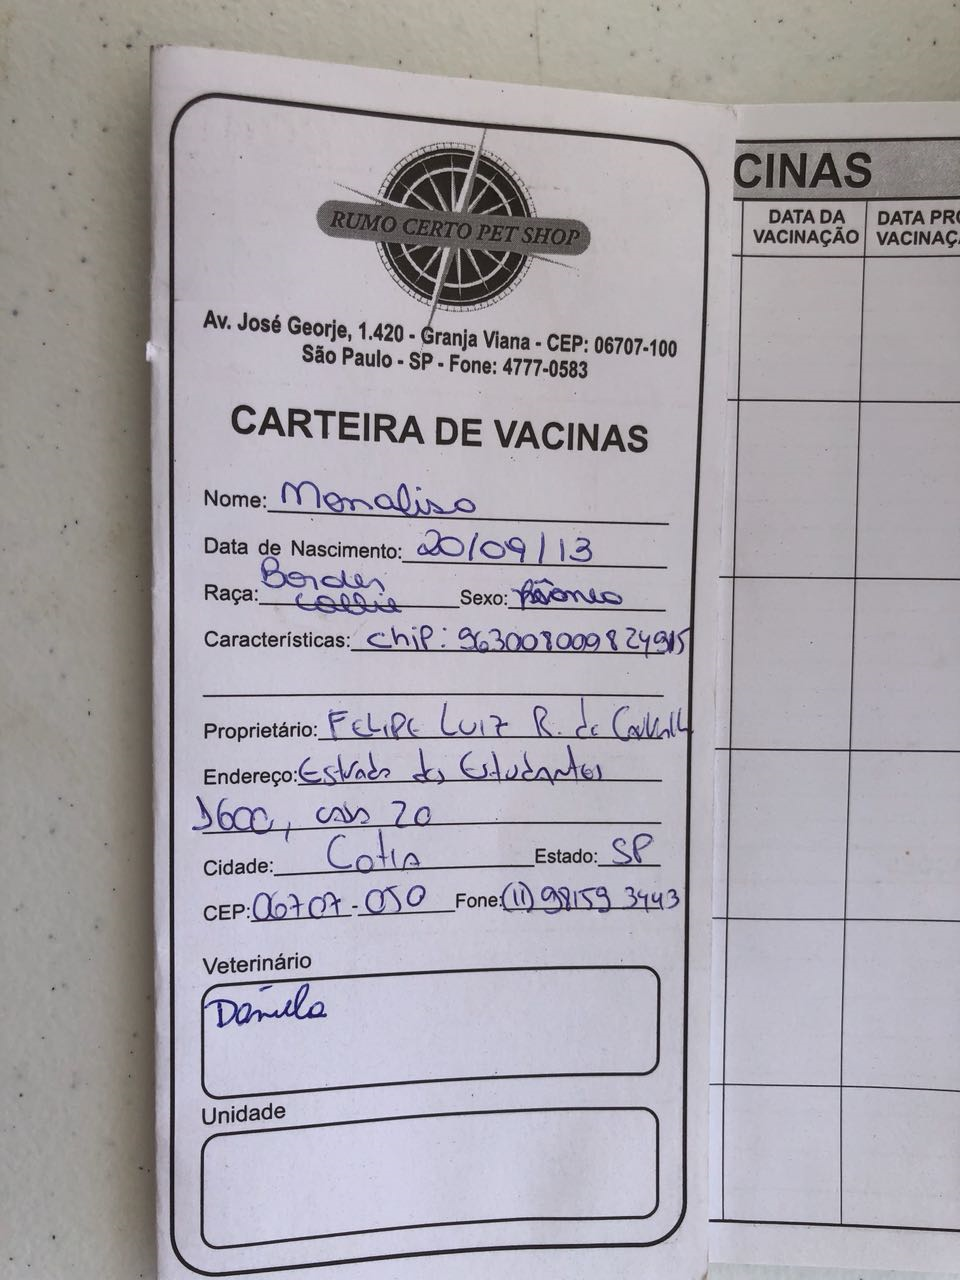 RUMO CERTO PET SHOP
Av. José Georje, 1.420 - Granja Viana - CEP: 06707-100
São Paulo - SP - Fone: 4777-0583
CARTEIRA DE VACINAS
Nome: Monalisa
Data de Nascimento: 20/09/13
Raça: Border Collie Sexo: Fêmea
Características: chip: 963008009824915
Proprietário: FELIPE LUIZ R. de Carvalho
Endereço: Estrada dos Estudantes
casa 20
Cidade: Cotia Estado: SP
CEP: 06707-050 Fone: (11) 98159 3443
Veterinário
Daniela
Unidade
CINAS
DATA DA VACINAÇÃO
DATA PRO
VACINAÇ